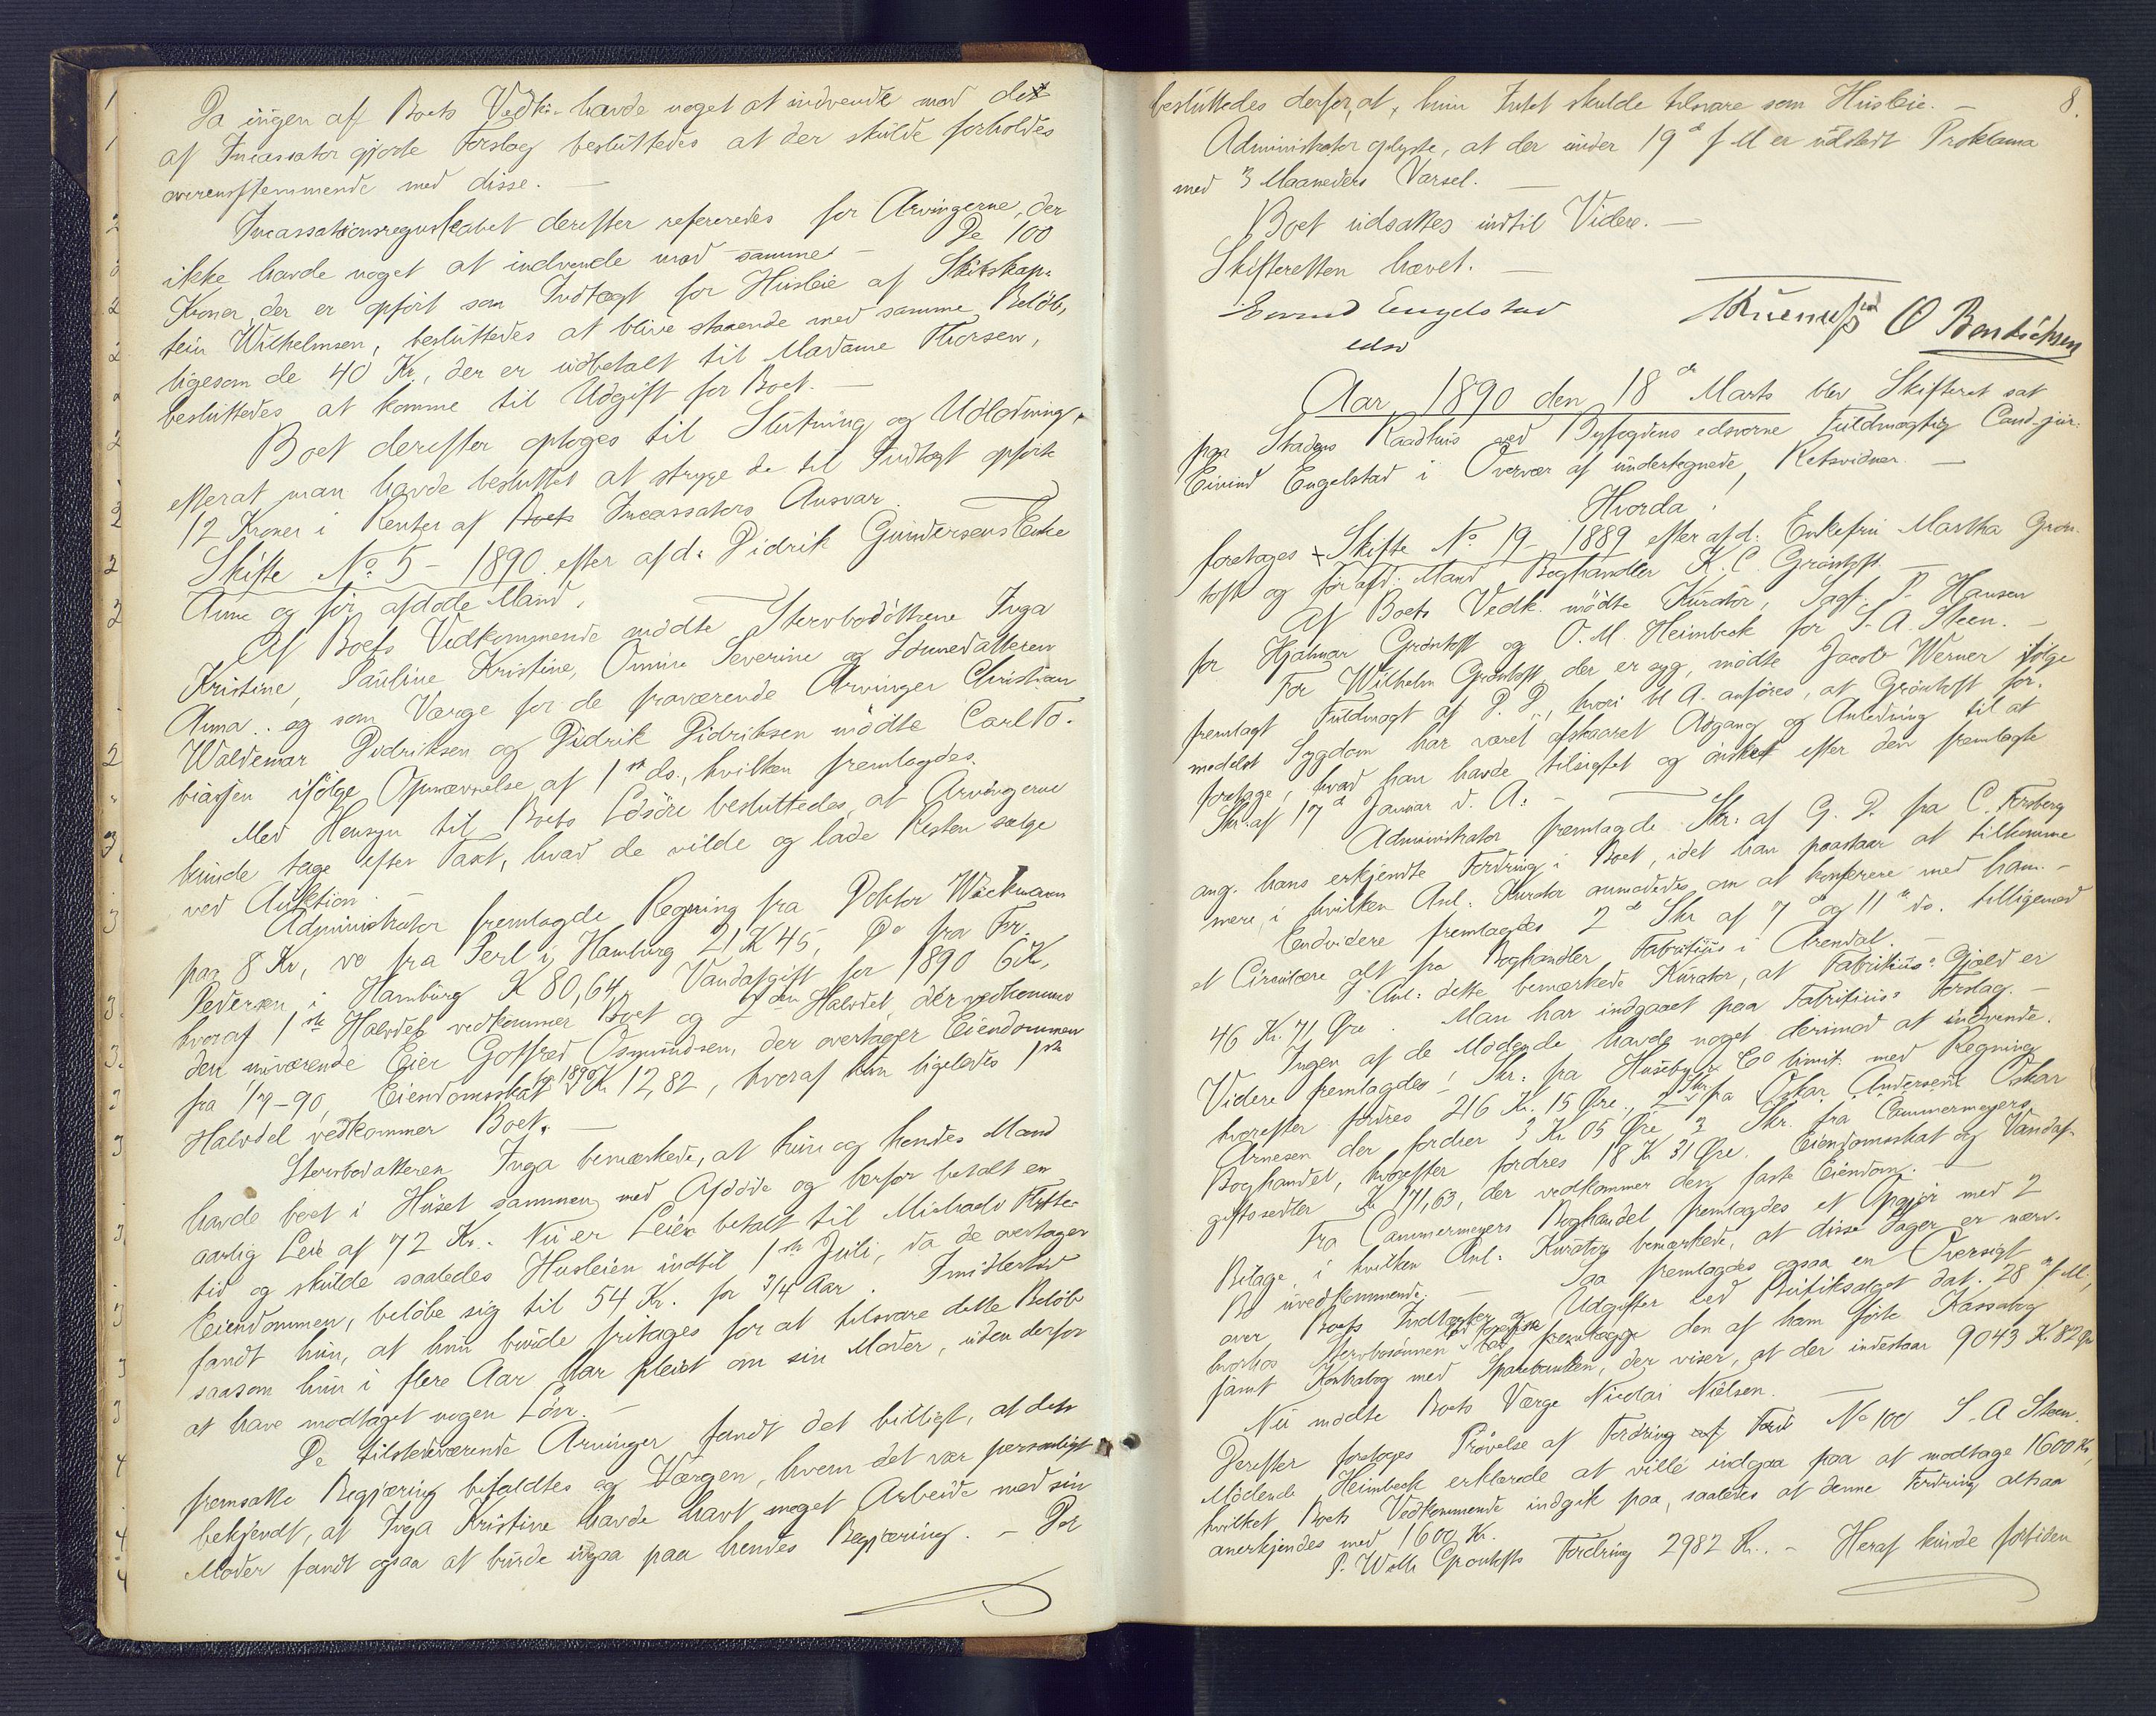 Da ingen af Boets Vedk: havde noget at indvende mod det
af Incassator gjorte Forslag besluttedes at der skulde forholdes
overensstemmende med disse. —
Incassationsregnskabet derefter refereredes for Arvingerne, der
ikke havde noget at indvende mod samme. — De 100
Kroner, der er opført som Indtægt for Husleie af Skibskap-
tein Wilhelmsen, besluttedes at blive staaende med samme Beløb,
ligesom de 40 Kr., der er udbetalt til Madame Thorsen,
besluttedes at komme til Udgift for Boet. —
Boet derefter optoges til Slutning og Udlodning,
efterat man havde besluttet at stryge de til Indtægt opførte
12 Kroner i Renter af Boets Incassators Ansvar.
Skifte No. 5 - 1890 efter afd. Didrik Gundersens Enke
Anne og før afdøde Mand.
Af Boets Vedkommende mødte Stervbodøttrene Inga
Kristine, Pauline Kristine, Severine og Sønnedatteren
Anna .. og som Værge for de fraværende Arvinger Christian
Waldemar Didriksen og Didrik Didriksen mødte Carl To-
biassen ifølge Opnævnelse af 1ste ds., hvilken fremlagdes.
Med Hensyn til Boets Løsøre besluttedes, at Arvingerne
kunde tage efter Taxt, hvad de vilde og lade Resten sælge
ved Auktion. —
Administrator fremlagde Regning fra Doktor Wiekmann
paa 8 Kr, do fra Perl i Hamburg 21 K 45, Do fra Fr.
Pedersen i Hamburg K 80,64, Vandafgift for 1890 6 K,
hvoraf 1ste Halvdel vedkommer Boet og 2den Halvdel, der vedkommer
den nuværende Eier Gotfred Osmundsen, der overtager Eiendommen
fra 1/7-90, Eiendomsskat for 1890 K 12,82, hvoraf kun ligeledes 1ste
Halvdel vedkommer Boet. —
Stervbodatteren Inga bemærkede, at hun og hendes Mand
havde boet i Huset sammen med Afdøde og herfor betalt en
aarlig Leie af 72 Kr. Nu er Leien betalt til Michaeli Flytte-
tid og skulde saaledes Husleien indtil 1ste Juli, da de overtager
Eiendommen, beløbe sig til 54 Kr. for 3/4 Aar. Imidlertid
fandt hun, at hun burde fritages for at tilsvare dette Beløb
saasom hun i flere Aar har pleiet om sin Moder, uden derfor
at have modtaget nogen Løn. —
De tilstedeværende Arvinger fandt det billigt, at den
fremsatte Begjæring bifaldtes og Værgen, hvem det var personligt
bekjendt, at Inga Kristine havde havt meget Arbeide med sin
Moder fandt ogsaa at burde ingaa paa hendes Begjæring. — Det
8.
besluttedes derfor, at hun Intet skulde tilsvare som Husleie. —
Administrator oplyste, at der under 19de f M er udstedt Proklama
med 3 Maaneders Varsel. —
Boet udsattes indtil Videre. —
Skifteretten hævet. —
Eivind Engelstad
edsv
O Bendichsen
Aar 1890 den 18de Marts blev Skifteret sat
paa Stadens Raadhus ved Byfogdens edsvorne Fuldmægtig Cand. jur.
Eivind Engelstad i Overvær af undertegnede Retsvidner. —
Hvorda!
foretoges Skifte No 19 - 1889 efter afd. Enkefru Martha Grøn-
toft og før afd. Mand Boghandler K. C. Grøntoft. —
Af Boets Vedk. mødte Kurator, Sagf. P. Hansen
for Hjalmar Grøntoft og O. M. Heimbeck for S. A. Steen. —
For Wilhelm Grøntoft, der er syg, mødte Jacob Werner ifølge
fremlagt Fuldmagt af D. D., hvori bl A. anføres, at Grøntoft for-
medelst Sygdom har været afskaaret Adgang og Anledning til at
foretage, hvad han havde tilsigtet og ønsket efter den fremlagte
Skr. af 17de Januar d. A: —
Administrator fremlagde Skr: af G. D. fra C. Forsberg
ang. hans erkjendte Fordring i Boet, idet han paastaar at tilkomme
mere, i hvilken Anl: Kurator anmodedes om at konferere med ham. —
Endvidere fremlagdes 2de Skr af 7de og 11te ds. tilligemed
et Cirkulære alt fra Boghandler Fabritius i Arendal. —
I Anl: dette bemærkede Kurator, at Fabritius's Gjæld er
46 Kr. 71 Øre. Man har indgaaet paa Fabritius's Forslag. —
Ingen af de Mødende havde noget derimod at indvende.
Videre fremlagdes: Skr: fra Huseby & Co limit. med Regning
hvorefter fordres 216 Kr. 15 Øre, 2 Skr fra Oskar Andersens Oskar
Arnesen der fordrer 3 Kr 05 Øre, 3 Skr. fra Cammermeyers
Boghandel, hvorefter fordres 18 K 31 Øre. Eiendomsskat og Vandaf-
giftssedler K 71,63, der vedkommer den faste Eiendom. —
Fra Cammermeyers Boghandel fremlagdes et Opgjør med 2
Bilage, i hvilken Anl: Kurator bemærkede, at disse Sager er nærv.
Bo uvedkommende. — Saa fremlagdes ogsaa en Oversigt
over Boets Indtægter og Udgifter ved Butiksalget dat. 28de f M,
hvorhos Stervbosønnen fremlagde den af ham førte Kassabog
samt Kontrabog med Sparebanken, der viser, at der indestaar 9043 Kr 82 Øre
Nu mødte Boets Værge Nicolai Nielsen. —
Derefter foretoges Prøvelse af Fordring No 100 S. A Steen.
Mødende Heimbeck erklærede at ville indgaa paa at modtage 1600 Kr,
hvilket Boets Vedkommende indgik paa, saaledes at denne Fordring altsaa
anerkjendes med 1600 Kr.
P. Wilh Grøntofts Fordring 2982 Kr. — Heraf kunde fortiden